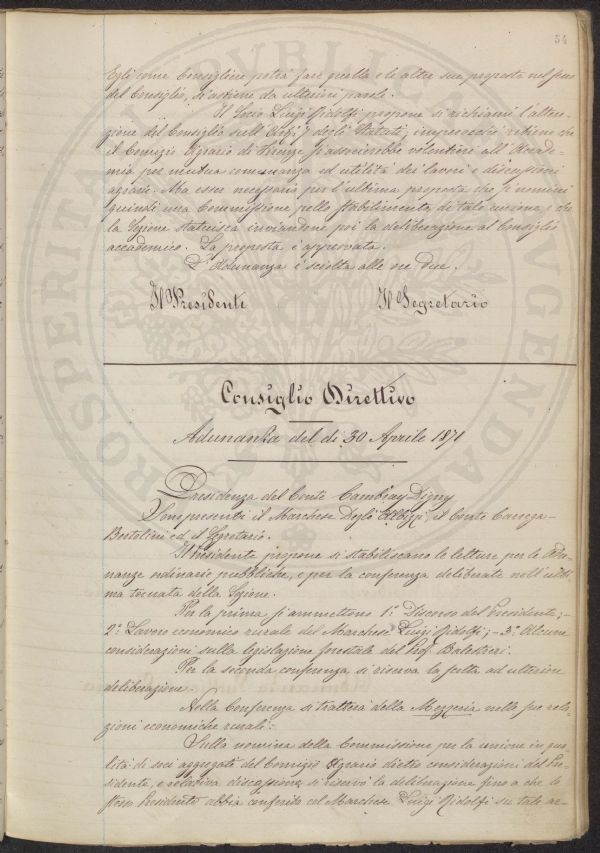 54
Egli come Consigliere potrà fare quella e le altre sue proposte nel seno
del Consiglio, si astiene da ulteriori parole.
Il Socio Luigi Ridolfi propone si richiami l'atten-
zione del Consiglio sull' degli Statuti, imperocché ritiene che
il Comizio Agrario di Firenze si associerebbe volentieri all'Accade-
mia per mutua comunanza ed utilità dei lavori e discussioni
agrarie. Ma esser necessario per l'ultima proposta che si nomini
quindi una Commissione pello stabilimento di tale unione, e che
la Sezione statuisca inviandone poi la deliberazione al Consiglio
accademico. La proposta è approvata.
L'Adunanza è sciolta alle ore due.
Il Presidente Il Segretario
Consiglio Direttivo
Adunanza del dì 30 Aprile 1871
Presidenza del Conte Cambray Digny
Son presenti il Marchese Degli Albizzi, il Conte Carrega-
Bertolini ed il Segretario.
Il Presidente propone si stabiliscano le letture per le Adu-
nanze ordinarie pubbliche, e per la conferenza deliberate nell'ulti-
ma tornata della Sezione.
Per la prima si ammettono 1.° Discorso del Presidente; -
2.° Lavoro economico rurale del Marchese Luigi Ridolfi; - 3.° Alcune
considerazioni sulla legislazione forestale del Prof. Balestrieri.
Per la seconda conferenza si riserva la scelta ad ulteriore
deliberazione.
Nella Conferenza si tratterà della Mezzeria nelle sue rela-
zioni economiche rurali:
Sulla nomina della Commissione per la unione in qua-
lità di soci aggregati del Comizio Agrario dietro considerazioni del Pre-
sidente, e relativa discussione si riservò la deliberazione fino a che lo
stesso Presidente abbia conferito col Marchese Luigi Ridolfi su tale ar-